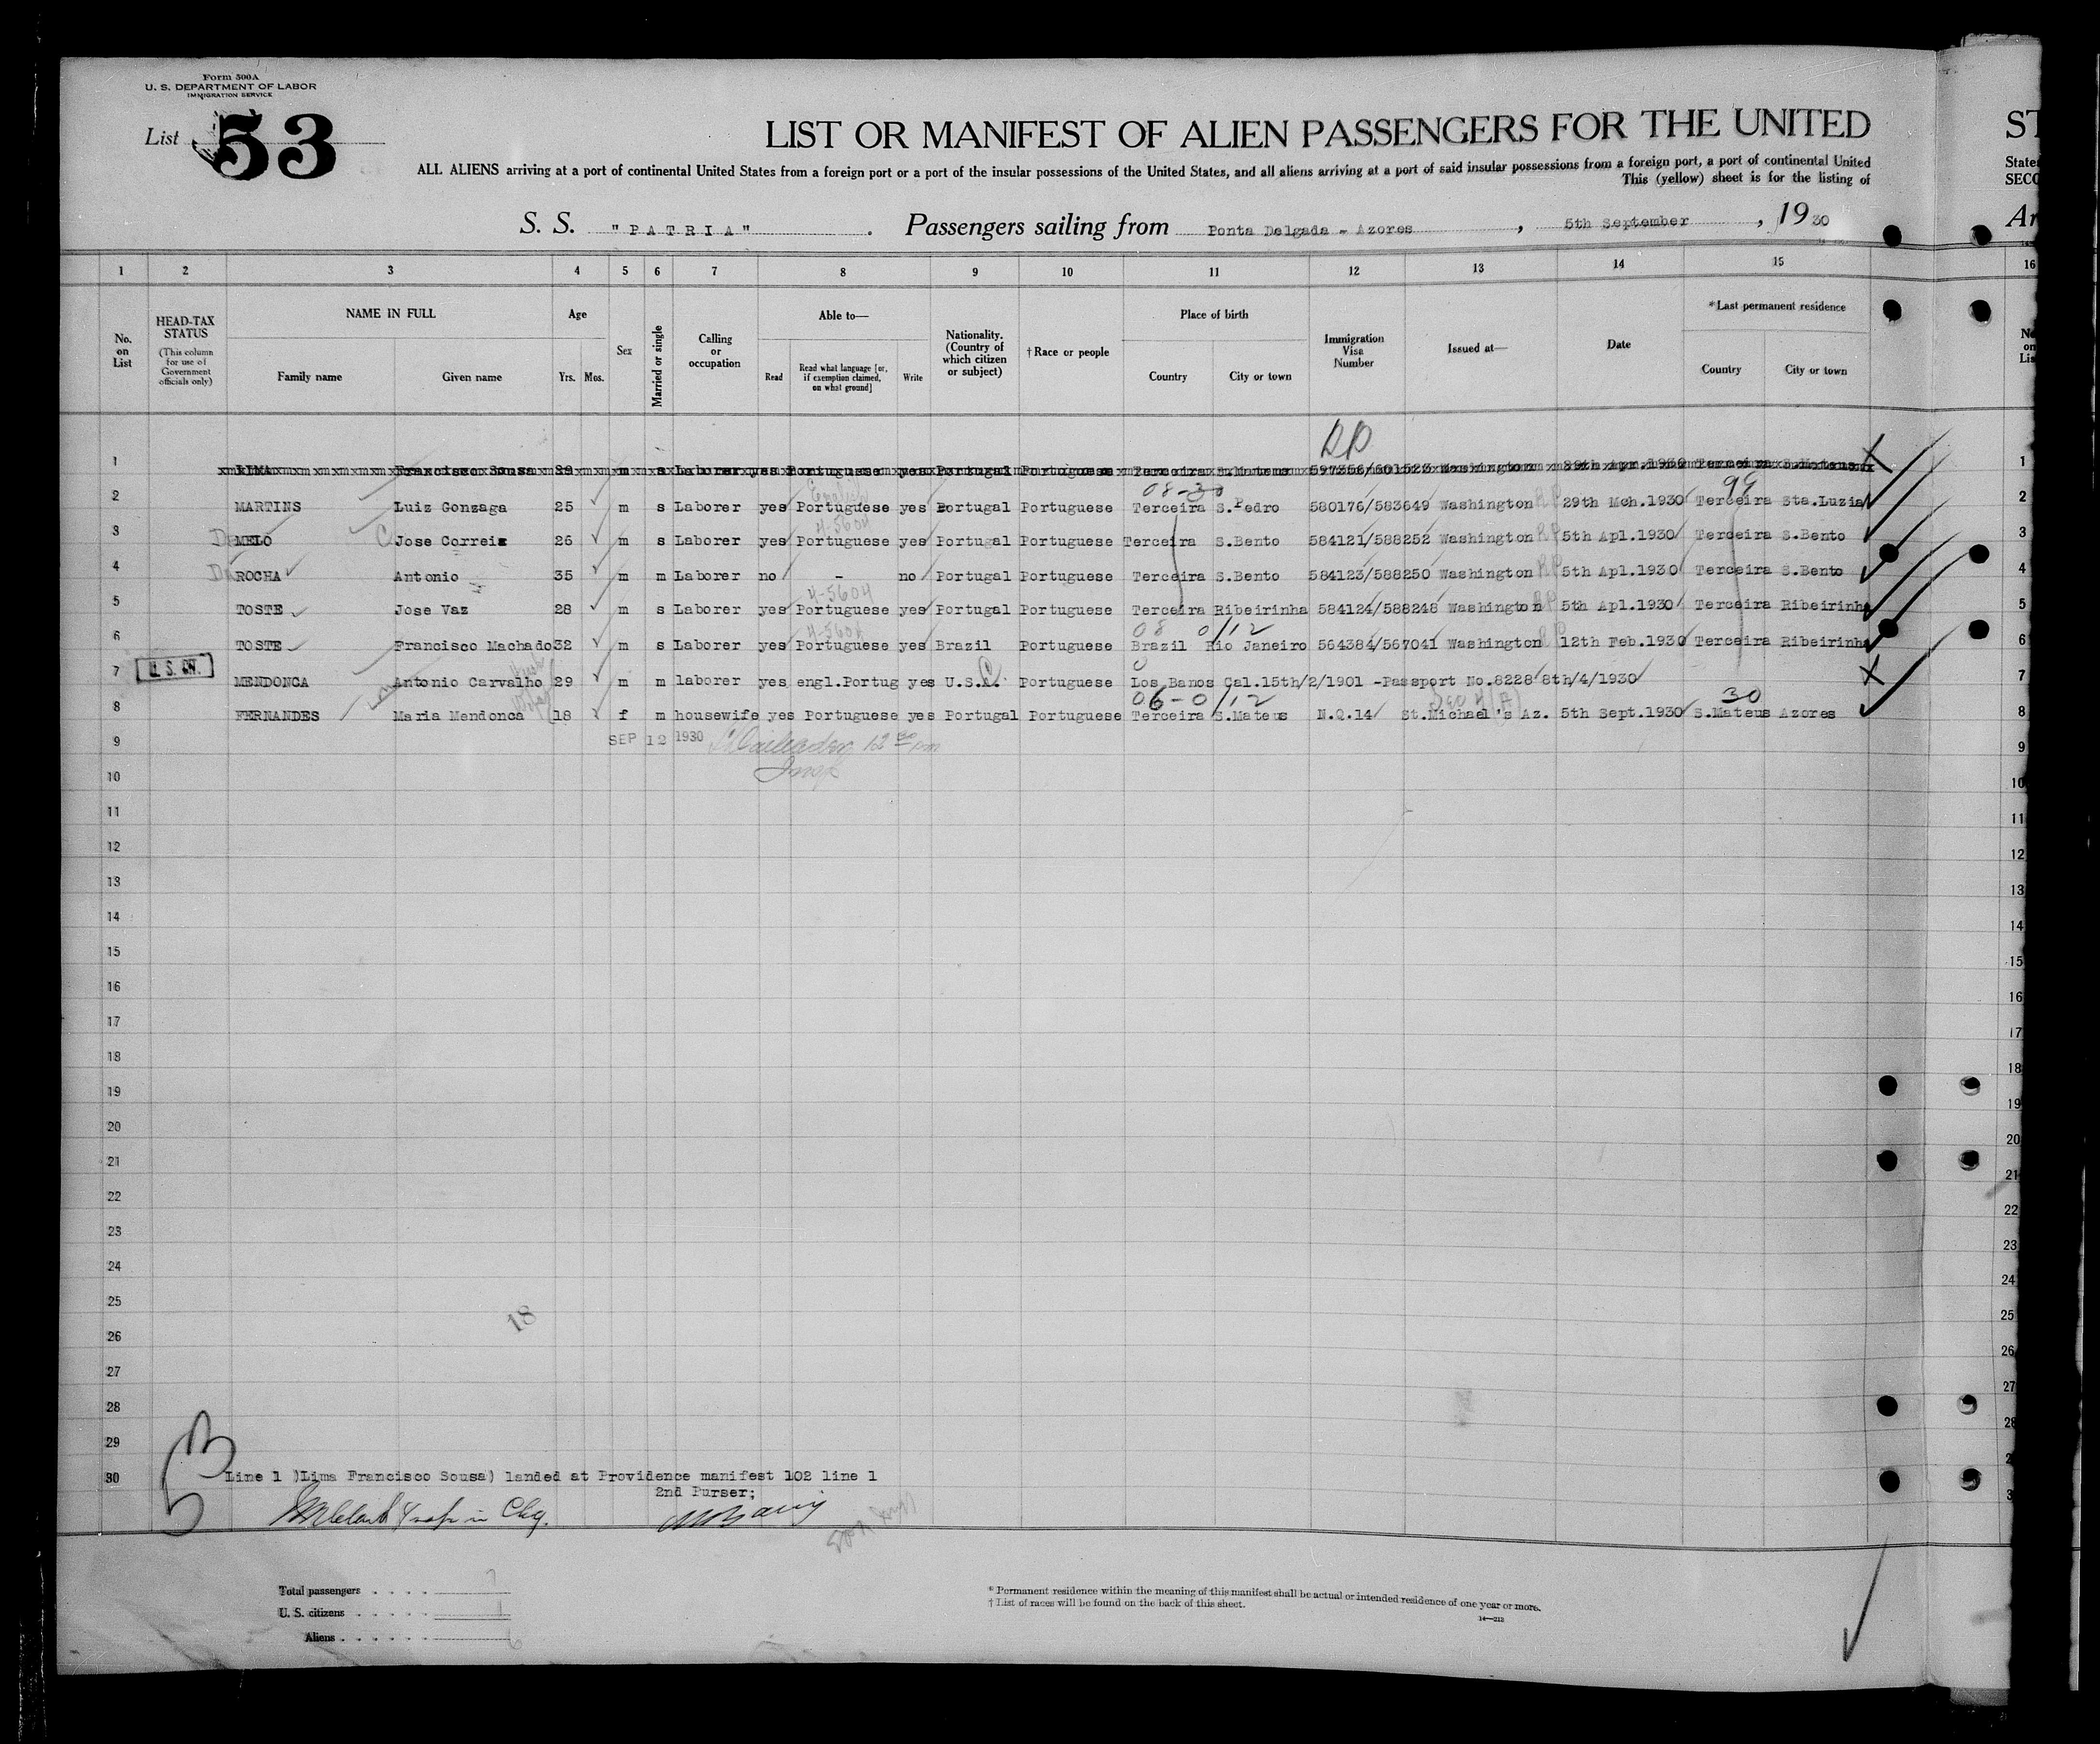 Form 500A
U. S. DEPARTMENT OF LABOR
IMMIGRATION SERVICE
List 53
LIST OR MANIFEST OF ALIEN PASSENGERS FOR THE UNITED
ST
ALL ALIENS arriving at a port of continental United States from a foreign port or a port of the insular possessions of the United States, and all aliens arriving at a port of said insular possessions from a foreign port, a port of continental United
This (yellow) sheet is for the listing of
State
SECO
S. S. "PATRIA". Passengers sailing from Ponta Delgada - Azores, 5th September, 1930
Ar
1 2 3 4 5 6 7 8 9 10 11 12 13 14 15 16
No. on List
HEAD-TAX STATUS
(This column for use of Government officials only)
NAME IN FULL
Family name
Given name
Age
Yrs. Mos.
Sex
Married or single
Calling or occupation
Able to—
Read
Read what language [or, if exemption claimed, on what ground]
Write
Nationality. (Country of which citizen or subject)
†Race or people
Place of birth
Country
City or town
Immigration Visa Number
Issued at—
Date
*Last permanent residence
Country
City or town
1 LIMA Francisco Sousa 29 m s Laborer yes Portuguese yes Portugal Portuguese Terceira S.Mateus 597356/601523 Washington 29th Apr.1930 Terceira S.Mateus 1
08-30
99
2 MARTINS Luiz Gonzaga 25 m s Laborer yes Portuguese yes Portugal Portuguese Terceira S.Pedro 580176/583649 Washington 29th Mch.1930 Terceira Sta.Luzia 2
4-5604
3 MELO Jose Correia 26 m s Laborer yes Portuguese yes Portugal Portuguese Terceira S.Bento 584121/588252 Washington 5th Apl.1930 Terceira S.Bento 3
4 ROCHA Antonio 35 m m Laborer no - no Portugal Portuguese Terceira S.Bento 584123/588250 Washington 5th Apl.1930 Terceira S.Bento 4
4-5604
5 TOSTE Jose Vaz 28 m s Laborer yes Portuguese yes Portugal Portuguese Terceira Ribeirinha 584124/588248 Washington 5th Apl.1930 Terceira Ribeirinha 5
4-5604
6 TOSTE Francisco Machado 32 m s Laborer yes Portuguese yes Brazil Portuguese Brazil Rio Janeiro 564384/567041 Washington 12th Feb.1930 Terceira Ribeirinha 6
7 MENDONCA Antonio Carvalho 29 m m laborer yes engl.Portug yes U.S.A. Portuguese Los Banos Cal.15th/2/1901 -Passport No.8228 8th/4/1930 7
06-0/12
30
8 FERNANDES Maria Mendonca 18 f m housewife yes Portuguese yes Portugal Portuguese Terceira S.Mateus N.Q.14 St.Michael's Az. 5th Sept.1930 S.Mateus Azores 8
9 SEP 12 1930 9
10 10
11 11
12 12
13 13
14 14
15 15
16 16
17 17
18 18
19 19
20 20
21 21
22 22
23 23
24 24
25 25
18
26 26
27 27
28 28
29
30 Line 1 )Lima Francisco Sousa) landed at Providence manifest 102 line 1
2nd Purser;
Total passengers 7
U. S. citizens 1
Aliens 6
* Permanent residence within the meaning of this manifest shall be actual or intended residence of one year or more.
† List of races will be found on the back of this sheet.